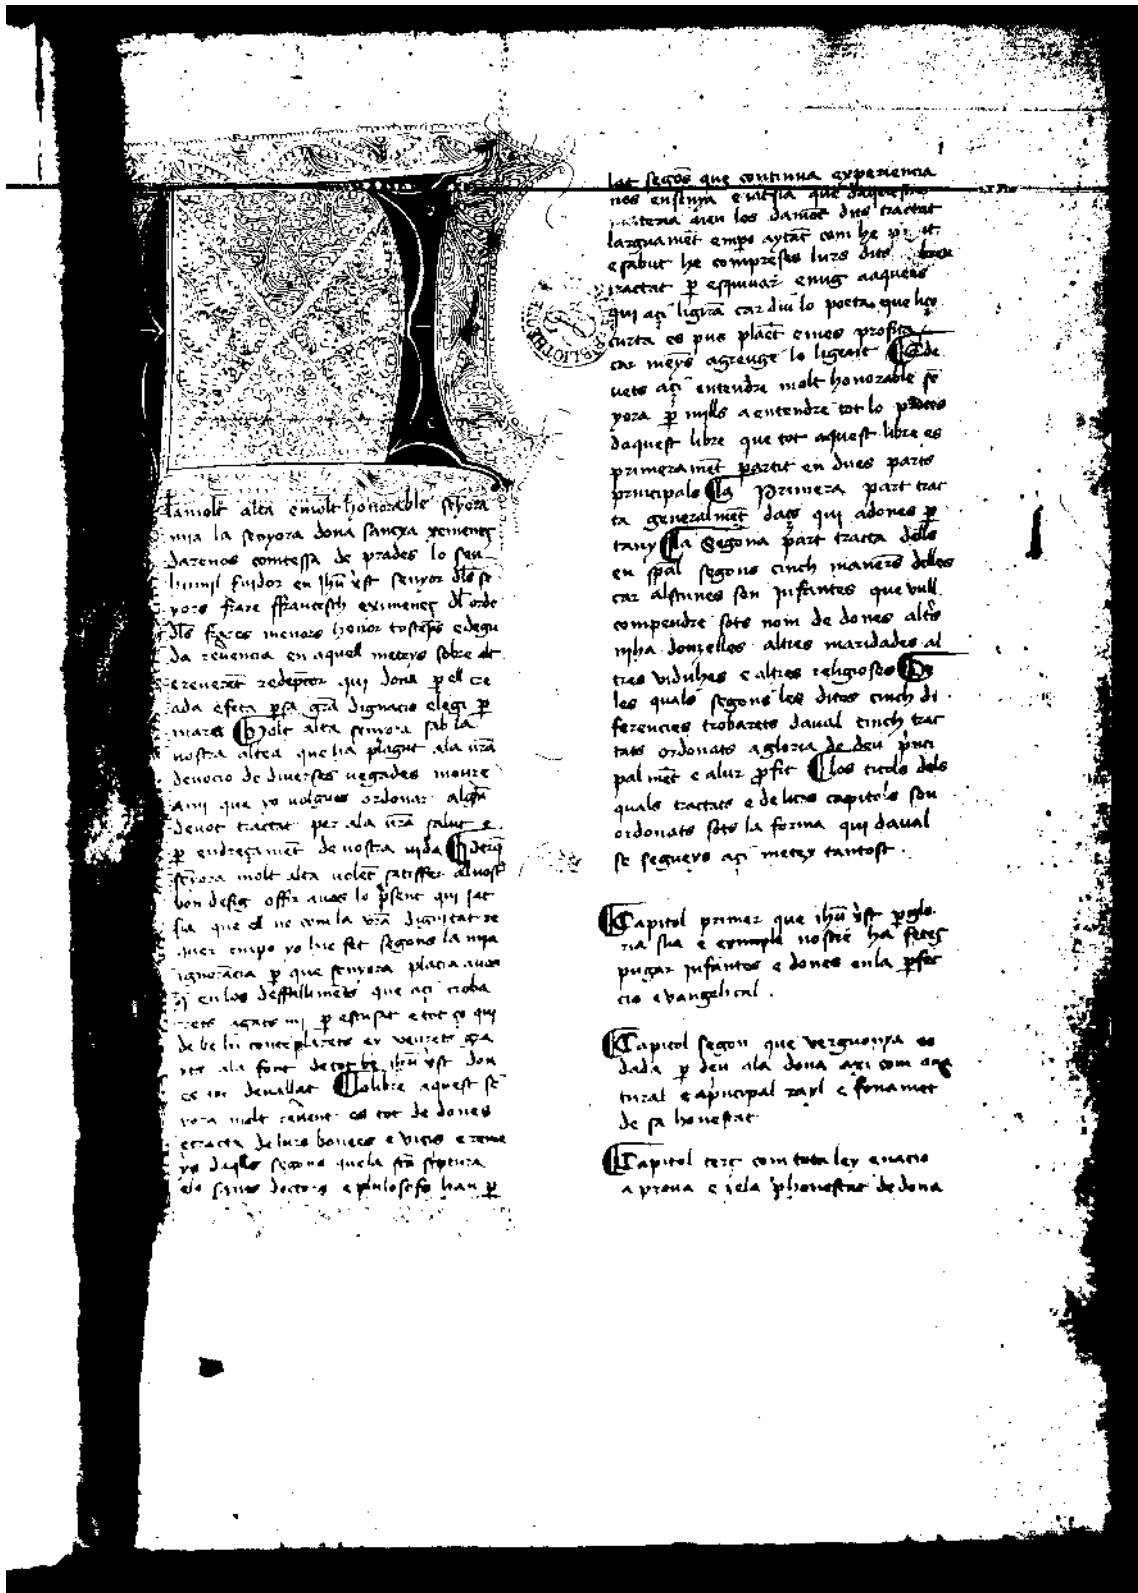 la molt alta e molt honorable senyora
mia la senyora dona sanxa xemeneç
darenos comtessa de prades lo seu
humil seruidor en ihu xst senyor dels se
yors frare ffrancesch eximeneç dl orde
dls frares menors honor tostemps e degu
da reuerencia en aquell meteys sobre alt
e reuerent redemptor qui dona per ell cre
ada e feta per sa gran dignacio elegi per
mare Molt alta senyora sab la
vostra altea que ha plagut ala vra
deuocio de diuerses vegades moure
ami que yo volgues ordonar algun
deuot tractat per ala vra salut e
per endreçament de vostra vida E per que
senyora molt alta volent satisffer al vostre
bon desig offir auos lo present qui jat
sia que el no com la vra dignitat re
quer empo yo lhe fet segons la mia
ignorancia per que senyora placia auos
si en los deffalliments que açi troba
rets agats mi per escusat e tot ço qui
de be hi contemplarets ex veurets gra
ala font de tot be ihu xst don
es tot deuallat Lo libre aquest se
yora molt reuerent es tot de dones
e tracta de lurs bonees e vicis e reme
ys daqlls segons que la sta scriptura
els sants doctors e philosofs han per
lat segons que continua experiencia
nos ensenya e iatsia que daquesta
materia aien los damont dits tractat
larguament empo aytant com he
e sabut he compreses lurs dits breu
tractat per esquiuar enug aaquells
qui açi ligiran car diu lo poeta que liço
curta es pus plaent e mes profita
car meyns agreuge lo ligent E de
uets açi entendre molt honorable se
yora per mills a entendre tot lo proces
daquest libre que tot aquest libre es
primerament partit en dues parts
principals La primera part trac
ta generalment daço qui adones per
tany La segona part tracta delles
en spal segons cinch maneres delles
car alscunes son infantes que vull
compendre sots nom de dones altres
niha donzelles altres maridades al
tres viduhes e altres religioses De
les quals segons les dites cinch di
ferencies trobarets daual cinch trac
tats ordonats a gloria de deu princi
palment e alur profit Los titols dels
quals tractats e de lurs capitols son
ordonats sots la forma qui daual
se segueys açi metex tantost .
Capitol primer que ihu xst per glo
ria sua e exemple nostre ha fetes
pugar infantes e dones en la perfec
cio euangelical .
Capitol segon que vergonya es
dada per deu ala dona axi com
tural e a principal rayl e fonament
de sa honestat
Capitol terç com tota ley e nacio
a proua e zela phonestat de dona